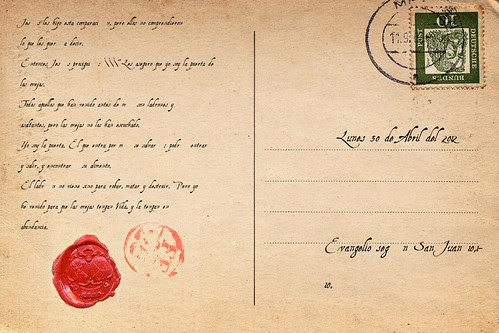 Jes s les hizo esta comparaci n, pero ellas no comprendieron
lo que les quer a decir.
Entonces Jes s prosigui : Les aseguro que yo soy la puerta de
las ovejas.
Todos aquellos que han venido antes de m son ladrones y
asaltantes, pero las ovejas no los han escuchado.
Yo soy la puerta. El que entra por m se salvar ; podr entrar
y salir, y encontrar su alimento.
El ladr n no viene sino para robar, matar y destruir. Pero yo
he venido para que las ovejas tengan Vida, y la tengan en
abundancia.
10
DEUTSCHE
BUNDES
POST
Lunes 30 de Abril del 2012
Evangelio seg n San Juan 10,1-
10.